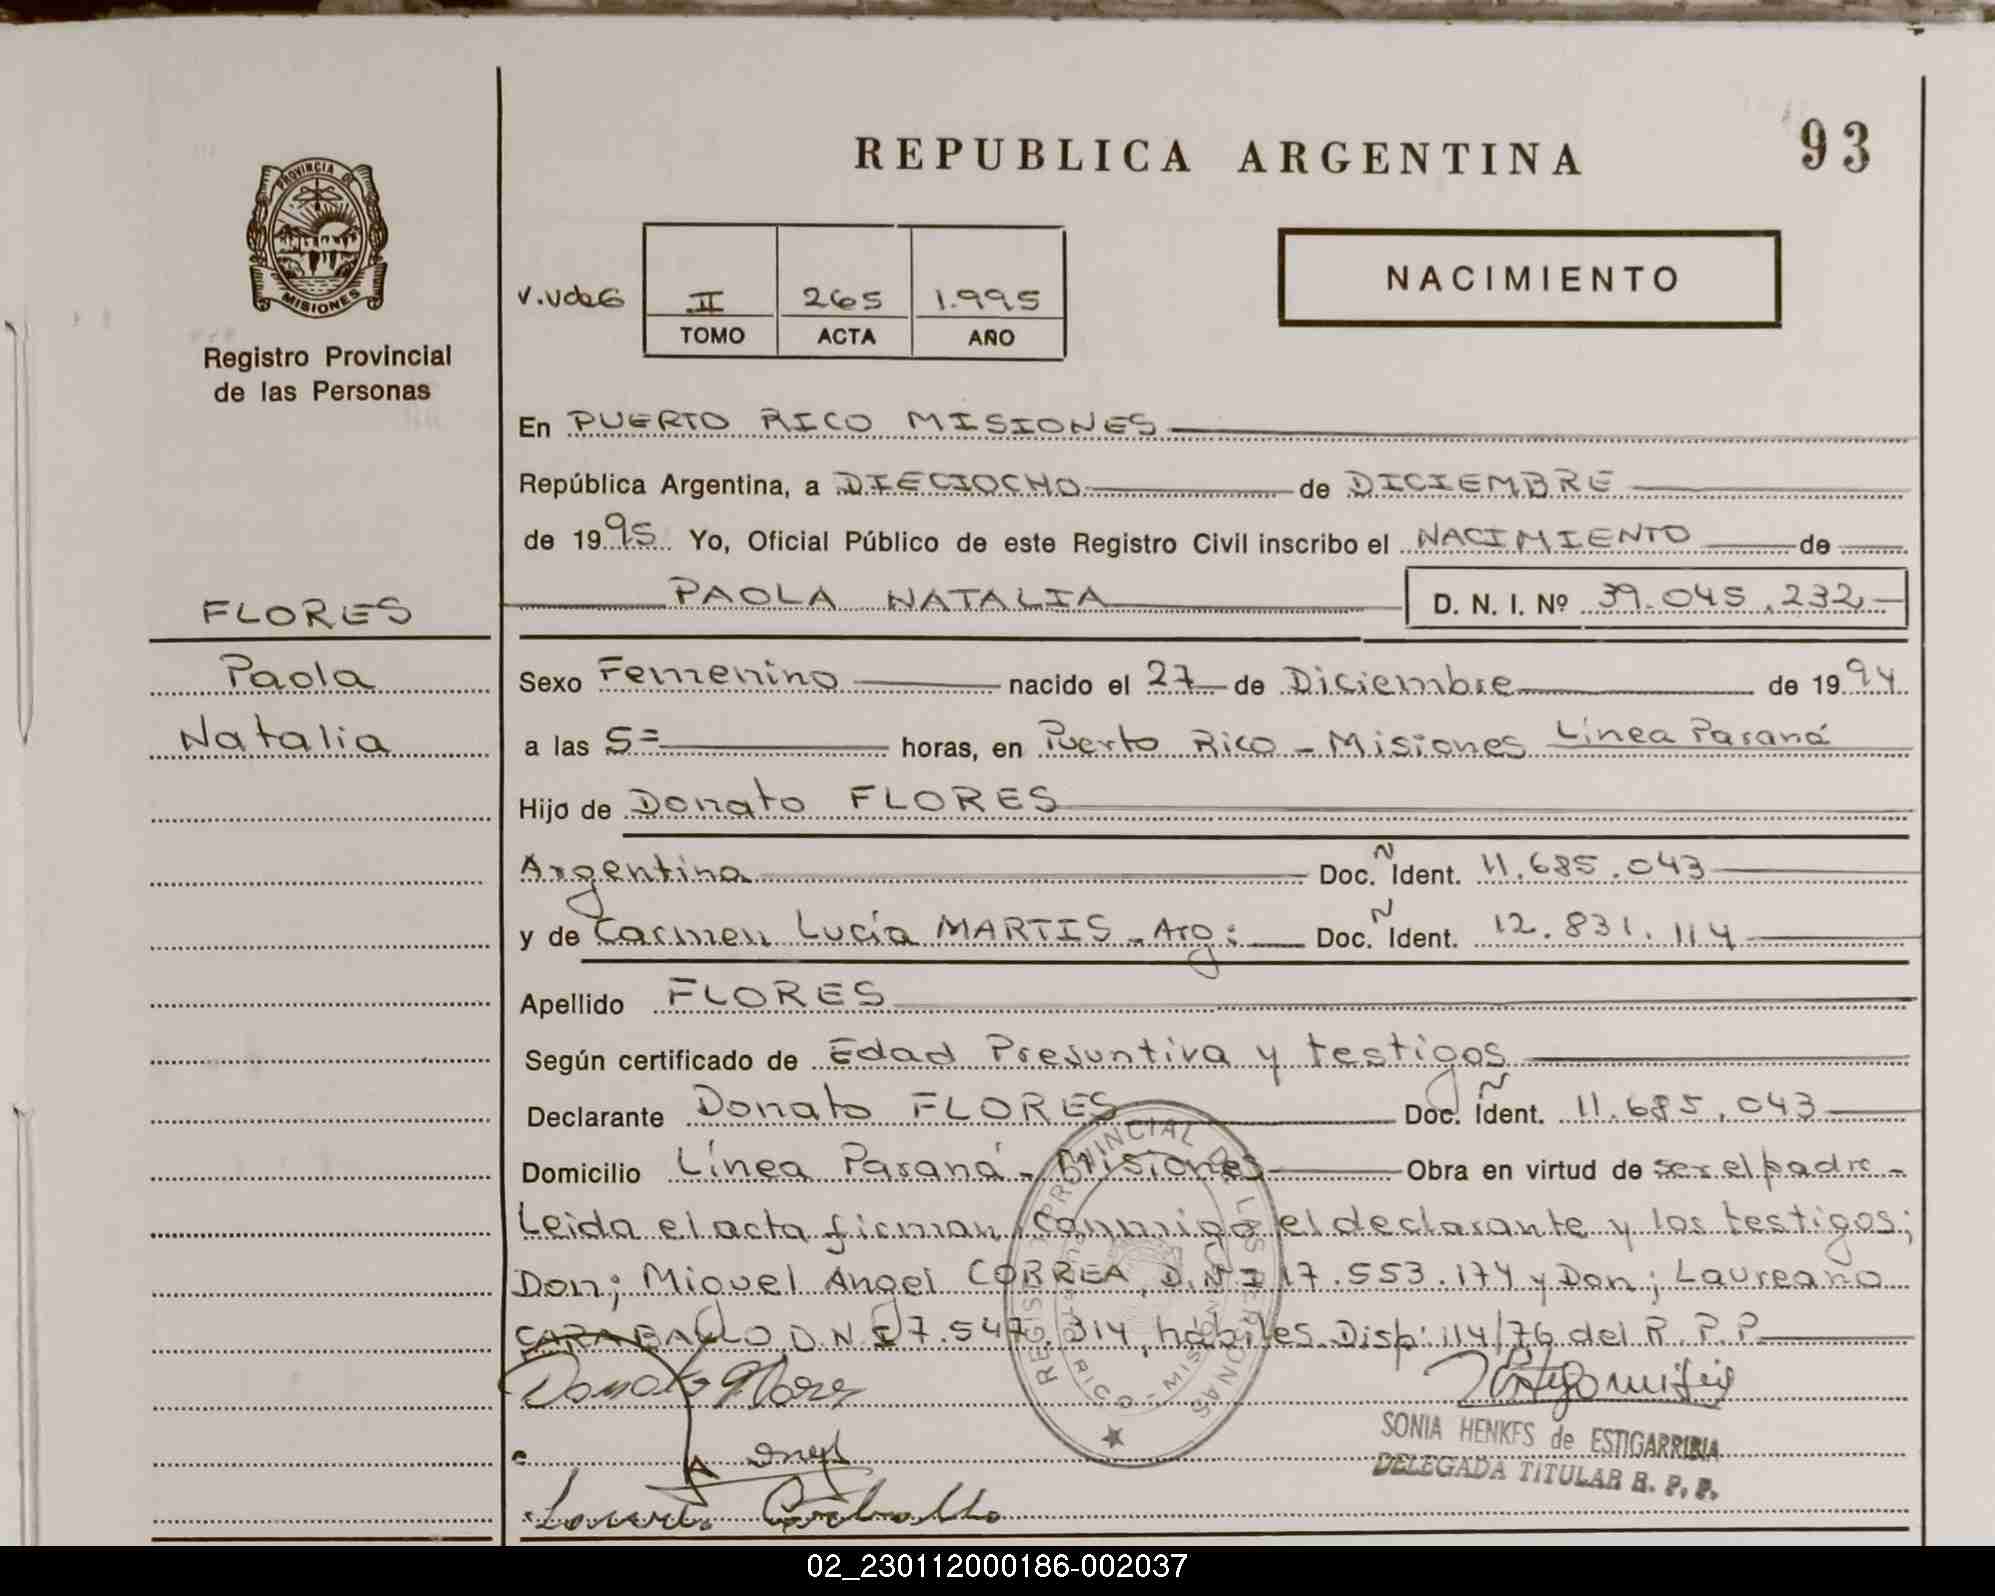 REPUBLICA ARGENTINA
93
PROVINCIA DE
MISIONES
Registro Provincial
de las Personas
NACIMIENTO
II 265 1.995
TOMO ACTA AÑO
En PUERTO RICO MISIONES
República Argentina, a DIECIOCHO de DICIEMBRE
de 1995 Yo, Oficial Público de este Registro Civil inscribo el NACIMIENTO de
PAOLA NATALIA D. N. I. Nº 39.045.232,-
FLORES
Paola
Natalia
Sexo Femenino nacido el 27 de Diciembre de 1994
a las 5= horas, en Puerto Rico - Misiones Línea Paraná
Hijo de Donato FLORES
Argentina Doc. Ñ Ident. 11.685.043
y de Carmen Lucía MARTIS - Arg: Doc. Ñ Ident. 12.831.114
Apellido FLORES
Según certificado de Edad Presuntiva y testigos
Declarante Donato FLORES Doc. Ñ Ident. 11.685.043
Domicilio Línea Paraná - Misiones Obra en virtud de ser el padre -
Leida el acta firman conmigo el declarante y los testigos;
Don; Miguel Angel CORREA, D.N.I 17.553.174 y Don; Laureano
CARABALLO D.N.I 7.547.314, habiles Disp: 114/76 del R.P.P
REGIST PROVINCIAL DE LAS PERSONAS
RICO - MISIONES
Donato Flores
SONIA HENKES de ESTIGARRIBIA
DELEGADA TITULAR R. P. P.
02_230112000186-002037